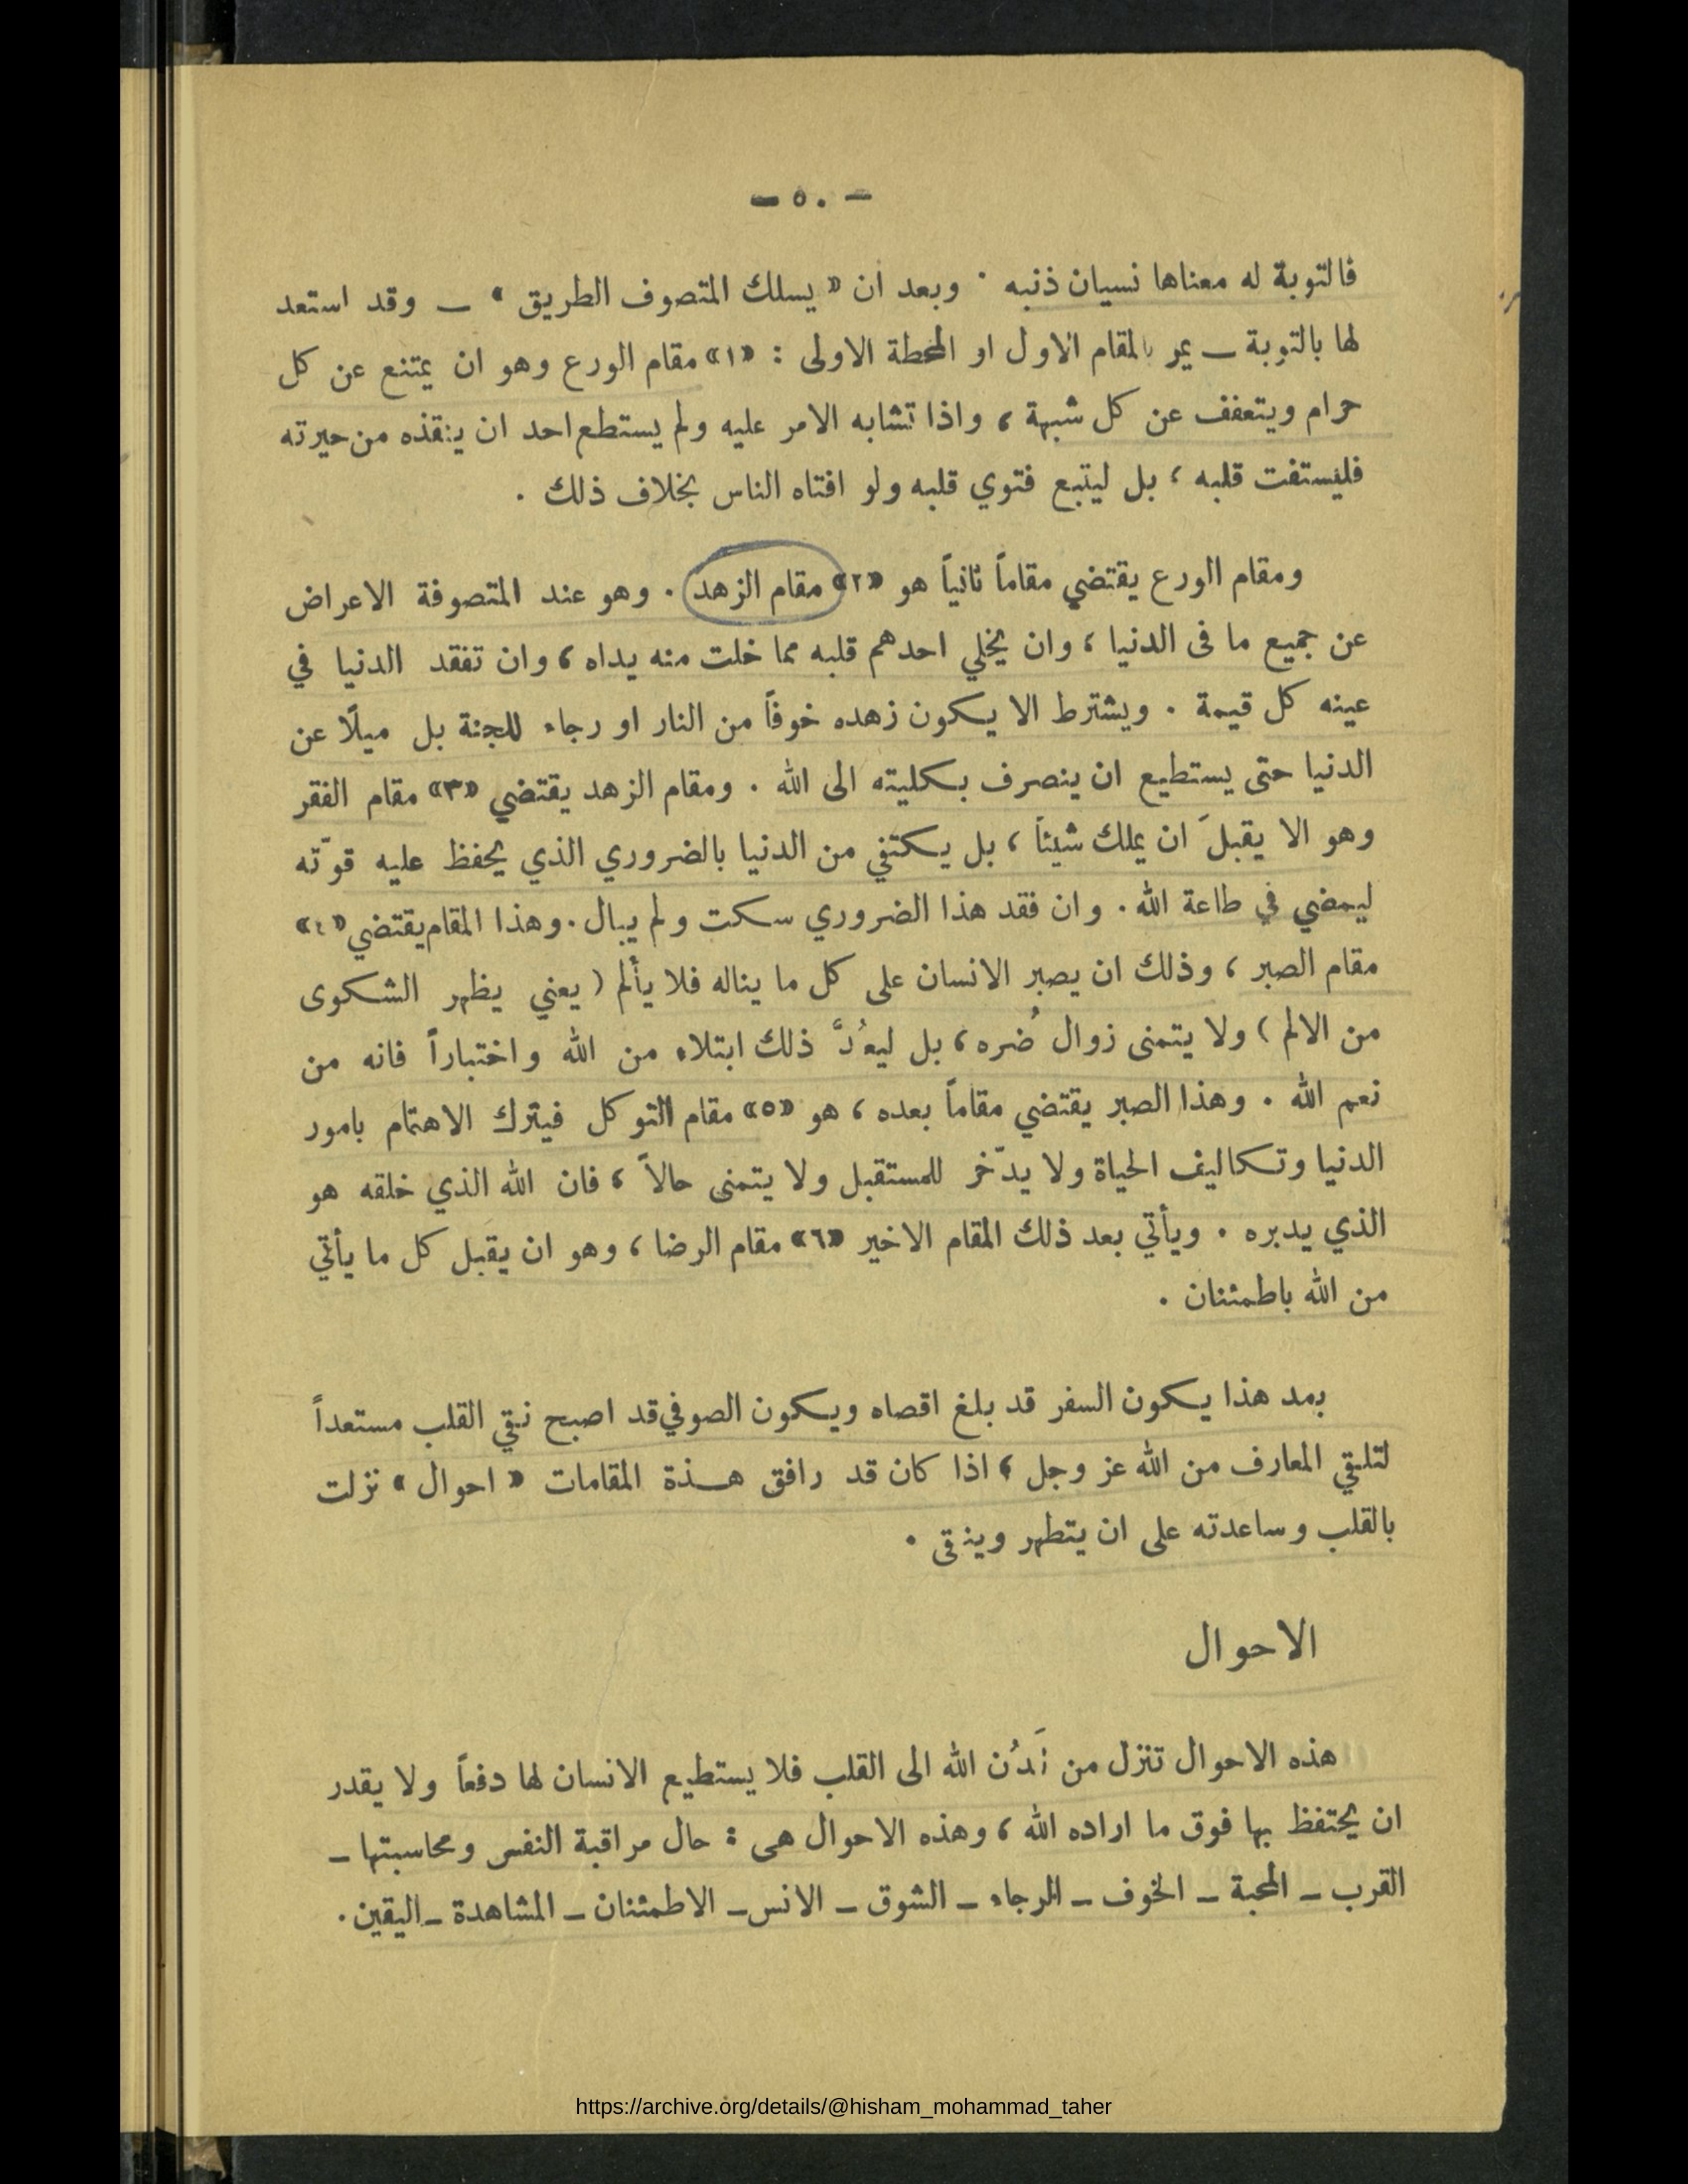 - ٥٠ -
فالتوبة له معناها نسيان ذنبه . وبعد ان « يسلك المتصوف الطريق » ــ وقد استعد
لها بالتوبة ــ يمر بالمقام الاول او المحطة الاولى : «١» مقام الورع وهو ان يمتنع عن كل
حرام ويتعفف عن كل شبهة ، واذا تشابه الامر عليه ولم يستطع احد ان ينقذه من حيرته
فليستفت قلبه ، بل ليتبع فتوي قلبه ولو افتاه الناس بخلاف ذلك .
ومقام الورع يقتضي مقاماً ثانياً هو «٢» مقام الزهد . وهو عند المتصوفة الاعراض
عن جميع ما فى الدنيا ، وان يخلي احدهم قلبه مما خلت منه يداه ، وان تفقد الدنيا في
عينه كل قيمة . ويشترط الا يكون زهده خوفاً من النار او رجاء للجنة بل ميلًا عن
الدنيا حتى يستطيع ان ينصرف بكليته الى الله . ومقام الزهد يقتضي «٣» مقام الفقر
وهو الا يقبلَ ان يملك شيئاً ، بل يكتفي من الدنيا بالضروري الذي يحفظ عليه قوّته
ليمضي في طاعة الله . وان فقد هذا الضروري سكت ولم يبال . وهذا المقام يقتضي «٤»
مقام الصبر ، وذلك ان يصبر الانسان على كل ما يناله فلا يألم ( يعني يظهر الشكوى
من الالم ) ولا يتمنى زوال ضُره ، بل ليعُدَّ ذلك ابتلاء من الله واختباراً فانه من
نعم الله . وهذا الصبر يقتضي مقاماً بعده ، هو «٥» مقام التوكل فيترك الاهتمام بامور
الدنيا وتكاليف الحياة ولا يدّخر للمستقبل ولا يتمنى حالاً ، فان الله الذي خلقه هو
الذي يدبره . ويأتي بعد ذلك المقام الاخير «٦» مقام الرضا ، وهو ان يقبل كل ما يأتي
من الله باطمئنان .
بمد هذا يكون السفر قد بلغ اقصاه ويكون الصوفي قد اصبح نقي القلب مستعداً
لتلقي المعارف من الله عز وجل ، اذا كان قد رافق هـذة المقامات « احوال » نزلت
بالقلب وساعدته على ان يتطهر وينقى .
الاحوال
هذه الاحوال تنزل من لَدُن الله الى القلب فلا يستطيع الانسان لها دفعاً ولا يقدر
ان يحتفظ بها فوق ما اراده الله ، وهذه الاحوال هى : حال مراقبة النفس ومحاسبتها ــ
القرب ــ المحبة ــ الخوف ــ الرجاء ــ الشوق ــ الانس ــ الاطمئنان ــ المشاهدة ــ اليقين .
https://archive.org/details/@hisham_mohammad_taher